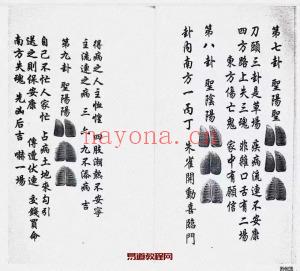 第七卦 聖陽聖
刀頭三卦是草場 疾病流連不安康
四方路上失三魂 非雜口舌有二場
東方傷亡鬼 家中有願信
第八卦 聖陰陽
卦內南方一丙丁 朱雀開動喜臨門
得病之人主恍惶 四肢潮熱不安寧
主流連之病 三 六 九不添病 吉
第九卦 聖陽陽
自己不忙人家忙 占病土地來勾引
送之則保安康 傳遣伏連 交錢買命
南方失魂 先凶后吉 嚇一場
nayona.cn
易道教程网